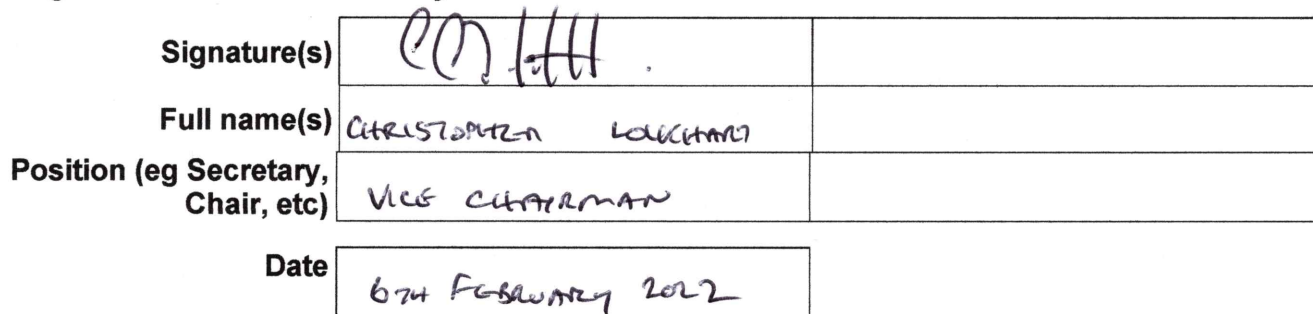 Signature(s)
Full name(s) CHRISTOPHER LOCKHART
Position (eg Secretary,
Chair, etc) VICE CHAIRMAN
Date 6TH FEBRUARY 2022